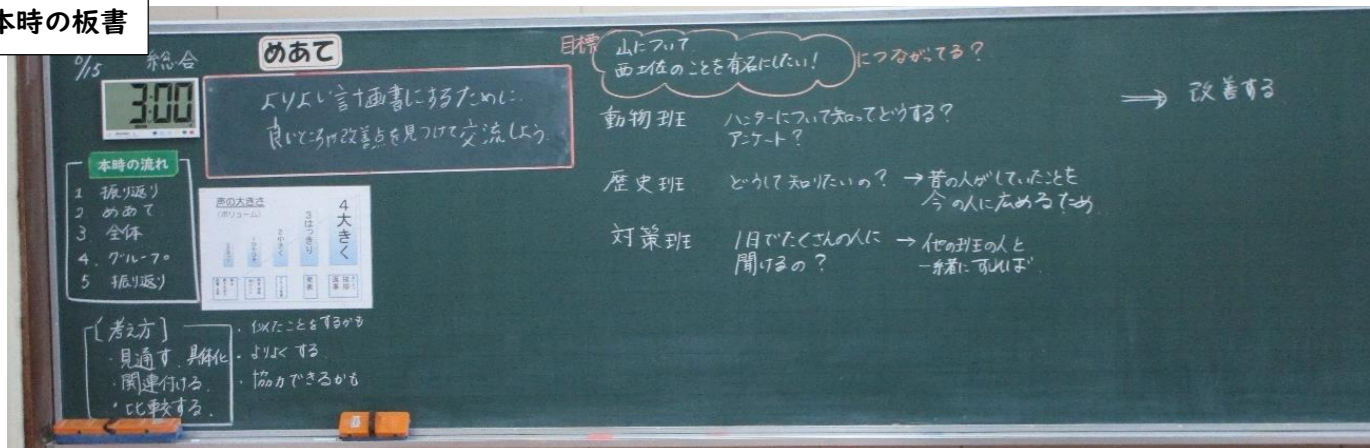 本時の板書
総合
3:00
めあて
よりよい計画書にするために
良いところや改善点を見つけて交流しよう
本時の流れ
1 振り返り
2 めあて
3 全体
4. グループ
5 振り返り
声の大きさ
(ボリューム)
4 大きく
3 はっきり
2 小さく
発表
[考え方]
・見通す、具体化
・関連付ける
・比較する
・似たことをするかも
・よりよくする
・協力できるかも
目標
山について
西土佐のことを有名にしたい!
につながってる?
動物班 ハンターについて知ってどうする?
アンケート?
歴史班 どうして知りたいの? → 昔の人がしていたことを
今の人に広めるため
対策班 1日でたくさんの人に → 他の班の人と
聞けるの? 一緒にすれば
⇒ 改善する